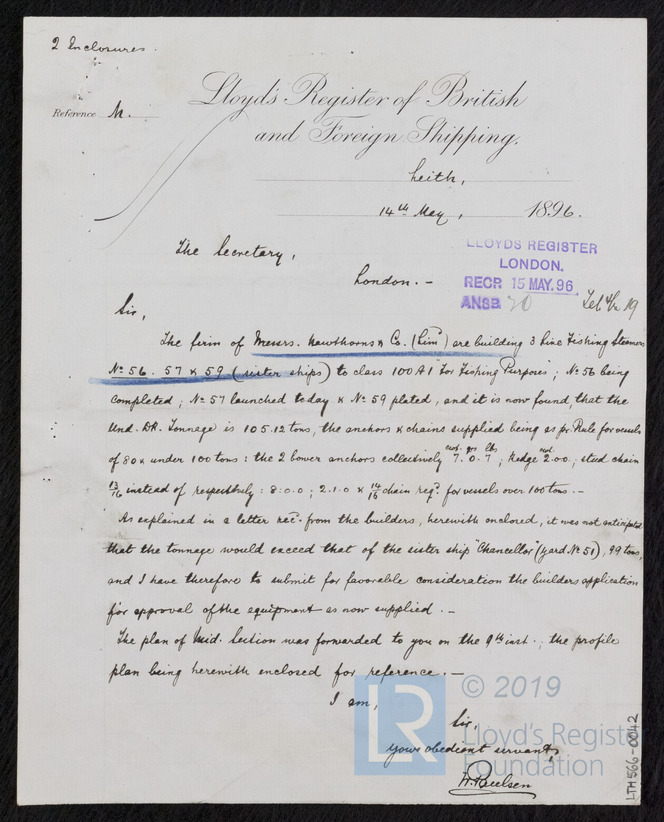 2 Enclosures.
Reference M.
Lloyd's Register of British
and Foreign Shipping.
Leith,
14th May, 1896.
The Secretary,
London. -
LLOYDS REGISTER
LONDON.
RECR 15 MAY.96
ANSR 20
Feb 19
Sir,
The firm of Messrs. Hawthorns & Co. (Lim) are building 3 Line Fishing Steamers
No 56. 57 & 59 (sister ships) to class 100A1 "For Fishing Purposes"; No 56 being
completed; No 57 launched today & No 59 plated, and it is now found, that the
Und. DK. Tonnage is 105.12 tons, the anchors & chains supplied being as pr Rule for vessels
of 80 & under 100 tons: the 2 bower anchors collectively 7 cwt. 0 qrs 7 lbs; kedge 2.0.0 cwt; stud chain
13/16 instead of respectively: 8.0.0; 2.1.0 & 14/16 chain reqd. for vessels over 100 tons. -
As explained in a letter recd. from the builders, herewith enclosed, it was not anticipated
that the tonnage would exceed that of the sister ship "Chancellor" (yard No 51), 99 tons,
and I have therefore to submit for favorable consideration the builders application
for approval of the equipment as now supplied. -
The plan of Mid. Section was forwarded to you on the 9th inst.; the profile
plan being herewith enclosed for reference. -
I am,
Sir,
yours obedient servant,
W. Paulsen
© 2019
LR
Lloyd's Register
Foundation
LTH566-0042